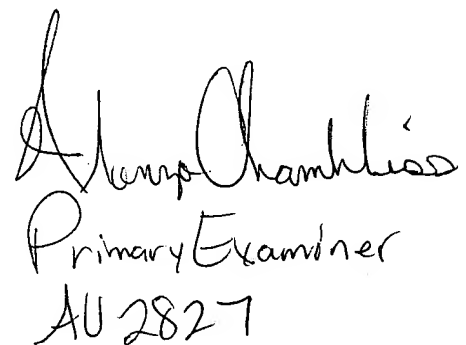 Alonzo Chambliss
Primary Examiner
AU 2827